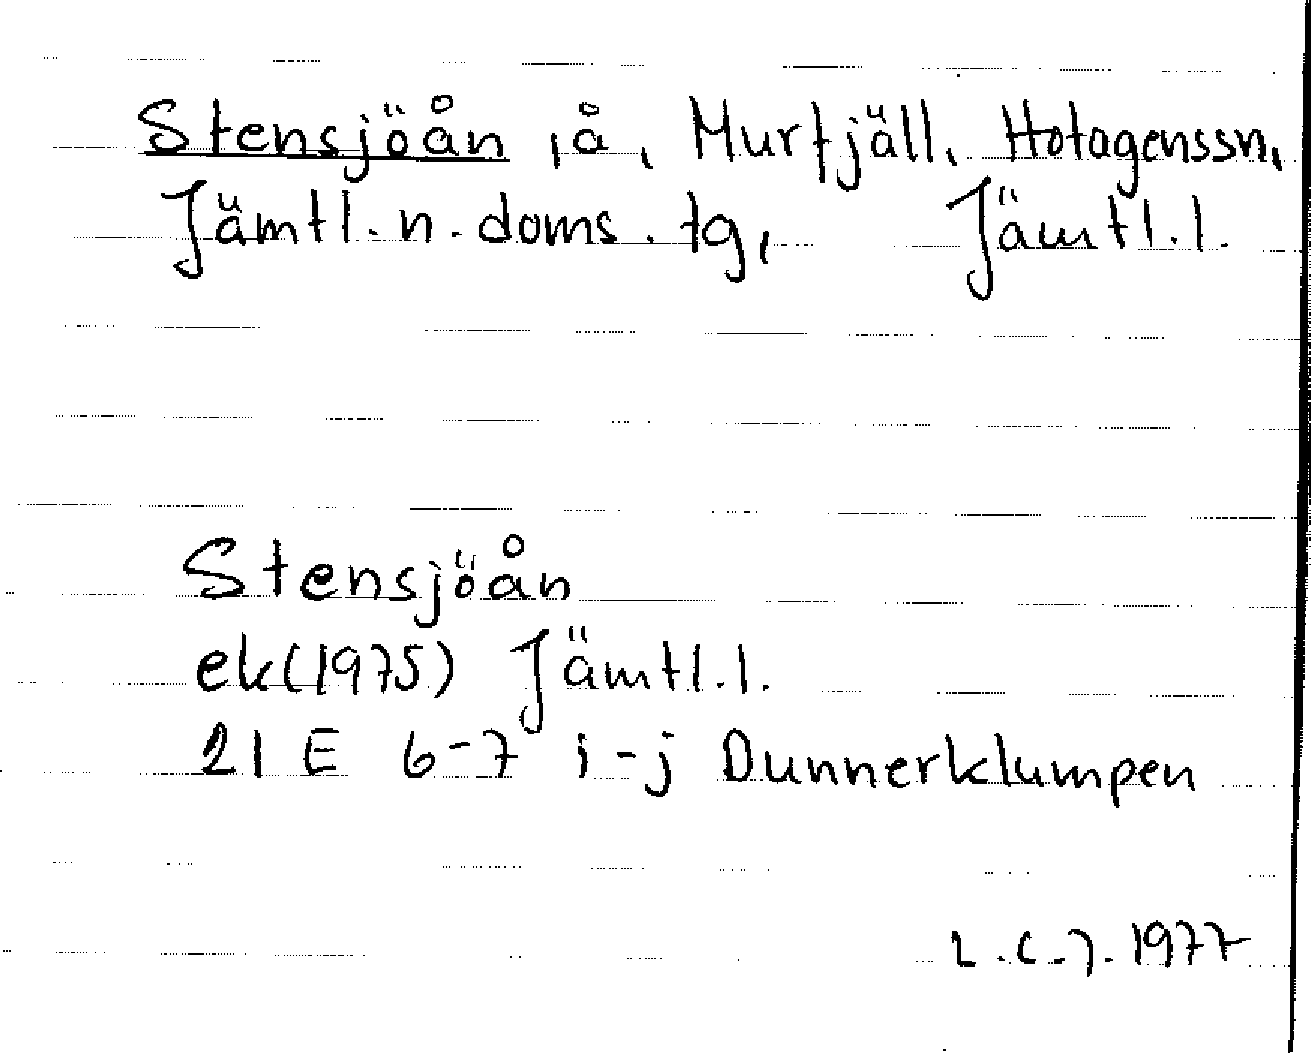 Stensjöån, å, Murfjäll, Hotagenssn,
Jämtl.n.doms.tg, Jämtl.l.
Stensjöån
ek(1975) Jämtl.l.
21 E 6-7 i-j Dunnerklumpen
1977